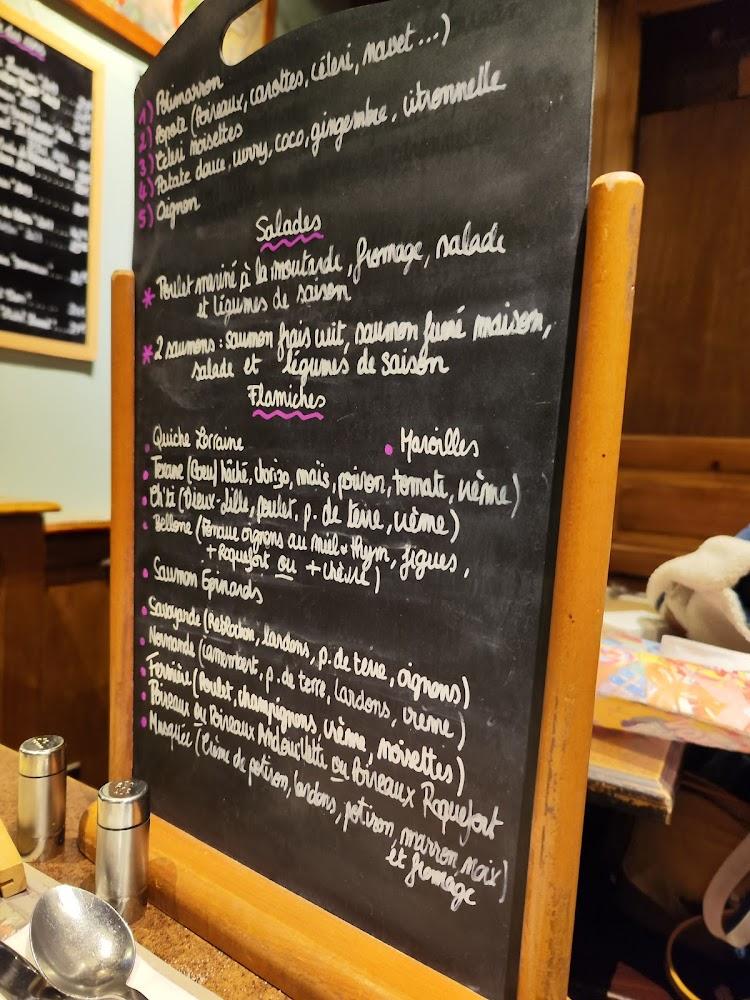 1) Potimarron
2) Popote (Poireaux, carottes, céleri, navet...)
3) Céleri noisettes
4) Patate douce, curry, coco, gingembre, citronnelle
5) Oignon
Salades
* Poulet mariné à la moutarde, fromage, salade
et légumes de saison
* 2 saumons : saumon frais cuit, saumon fumé maison,
salade et légumes de saison
Flamiches
• Quiche Lorraine • Maroilles
• Texane (boeuf hâché, chorizo, maïs, poivron, tomate, crème)
• Ch'ti (Vieux-Lille, poulet, p. de terre, crème)
• Bellone (Fondue oignons au miel & thym, figues,
+ Roquefort ou + chèvre)
• Saumon Épinards
• Savoyarde (Reblochon, lardons, p. de terre, oignons)
• Normande (camembert, p. de terre, lardons, crème)
• Fermière (Poulet, champignons, crème, noisettes)
• Poireaux ou Poireaux Andouillette ou Poireaux Roquefort
• Musquée (Crème de potiron, lardons, potiron, marron, noix)
et fromage